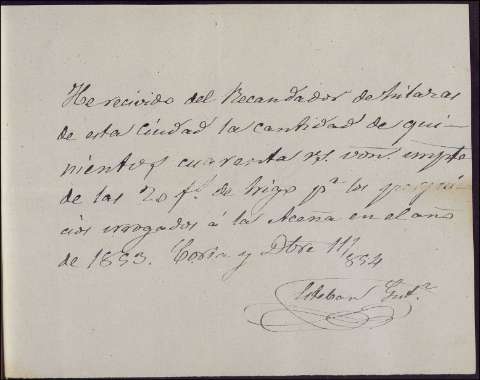 He recivido del Recaudador de
de esta Ciudad la cantidad de qui-
nientos cuarenta rs. von. impte
de las 20 fs. de trigo pa. los perjui-
cios irrogados á la Acena en el año
de 1853. Coria y Dbre 11/854
Esteban Gutz.